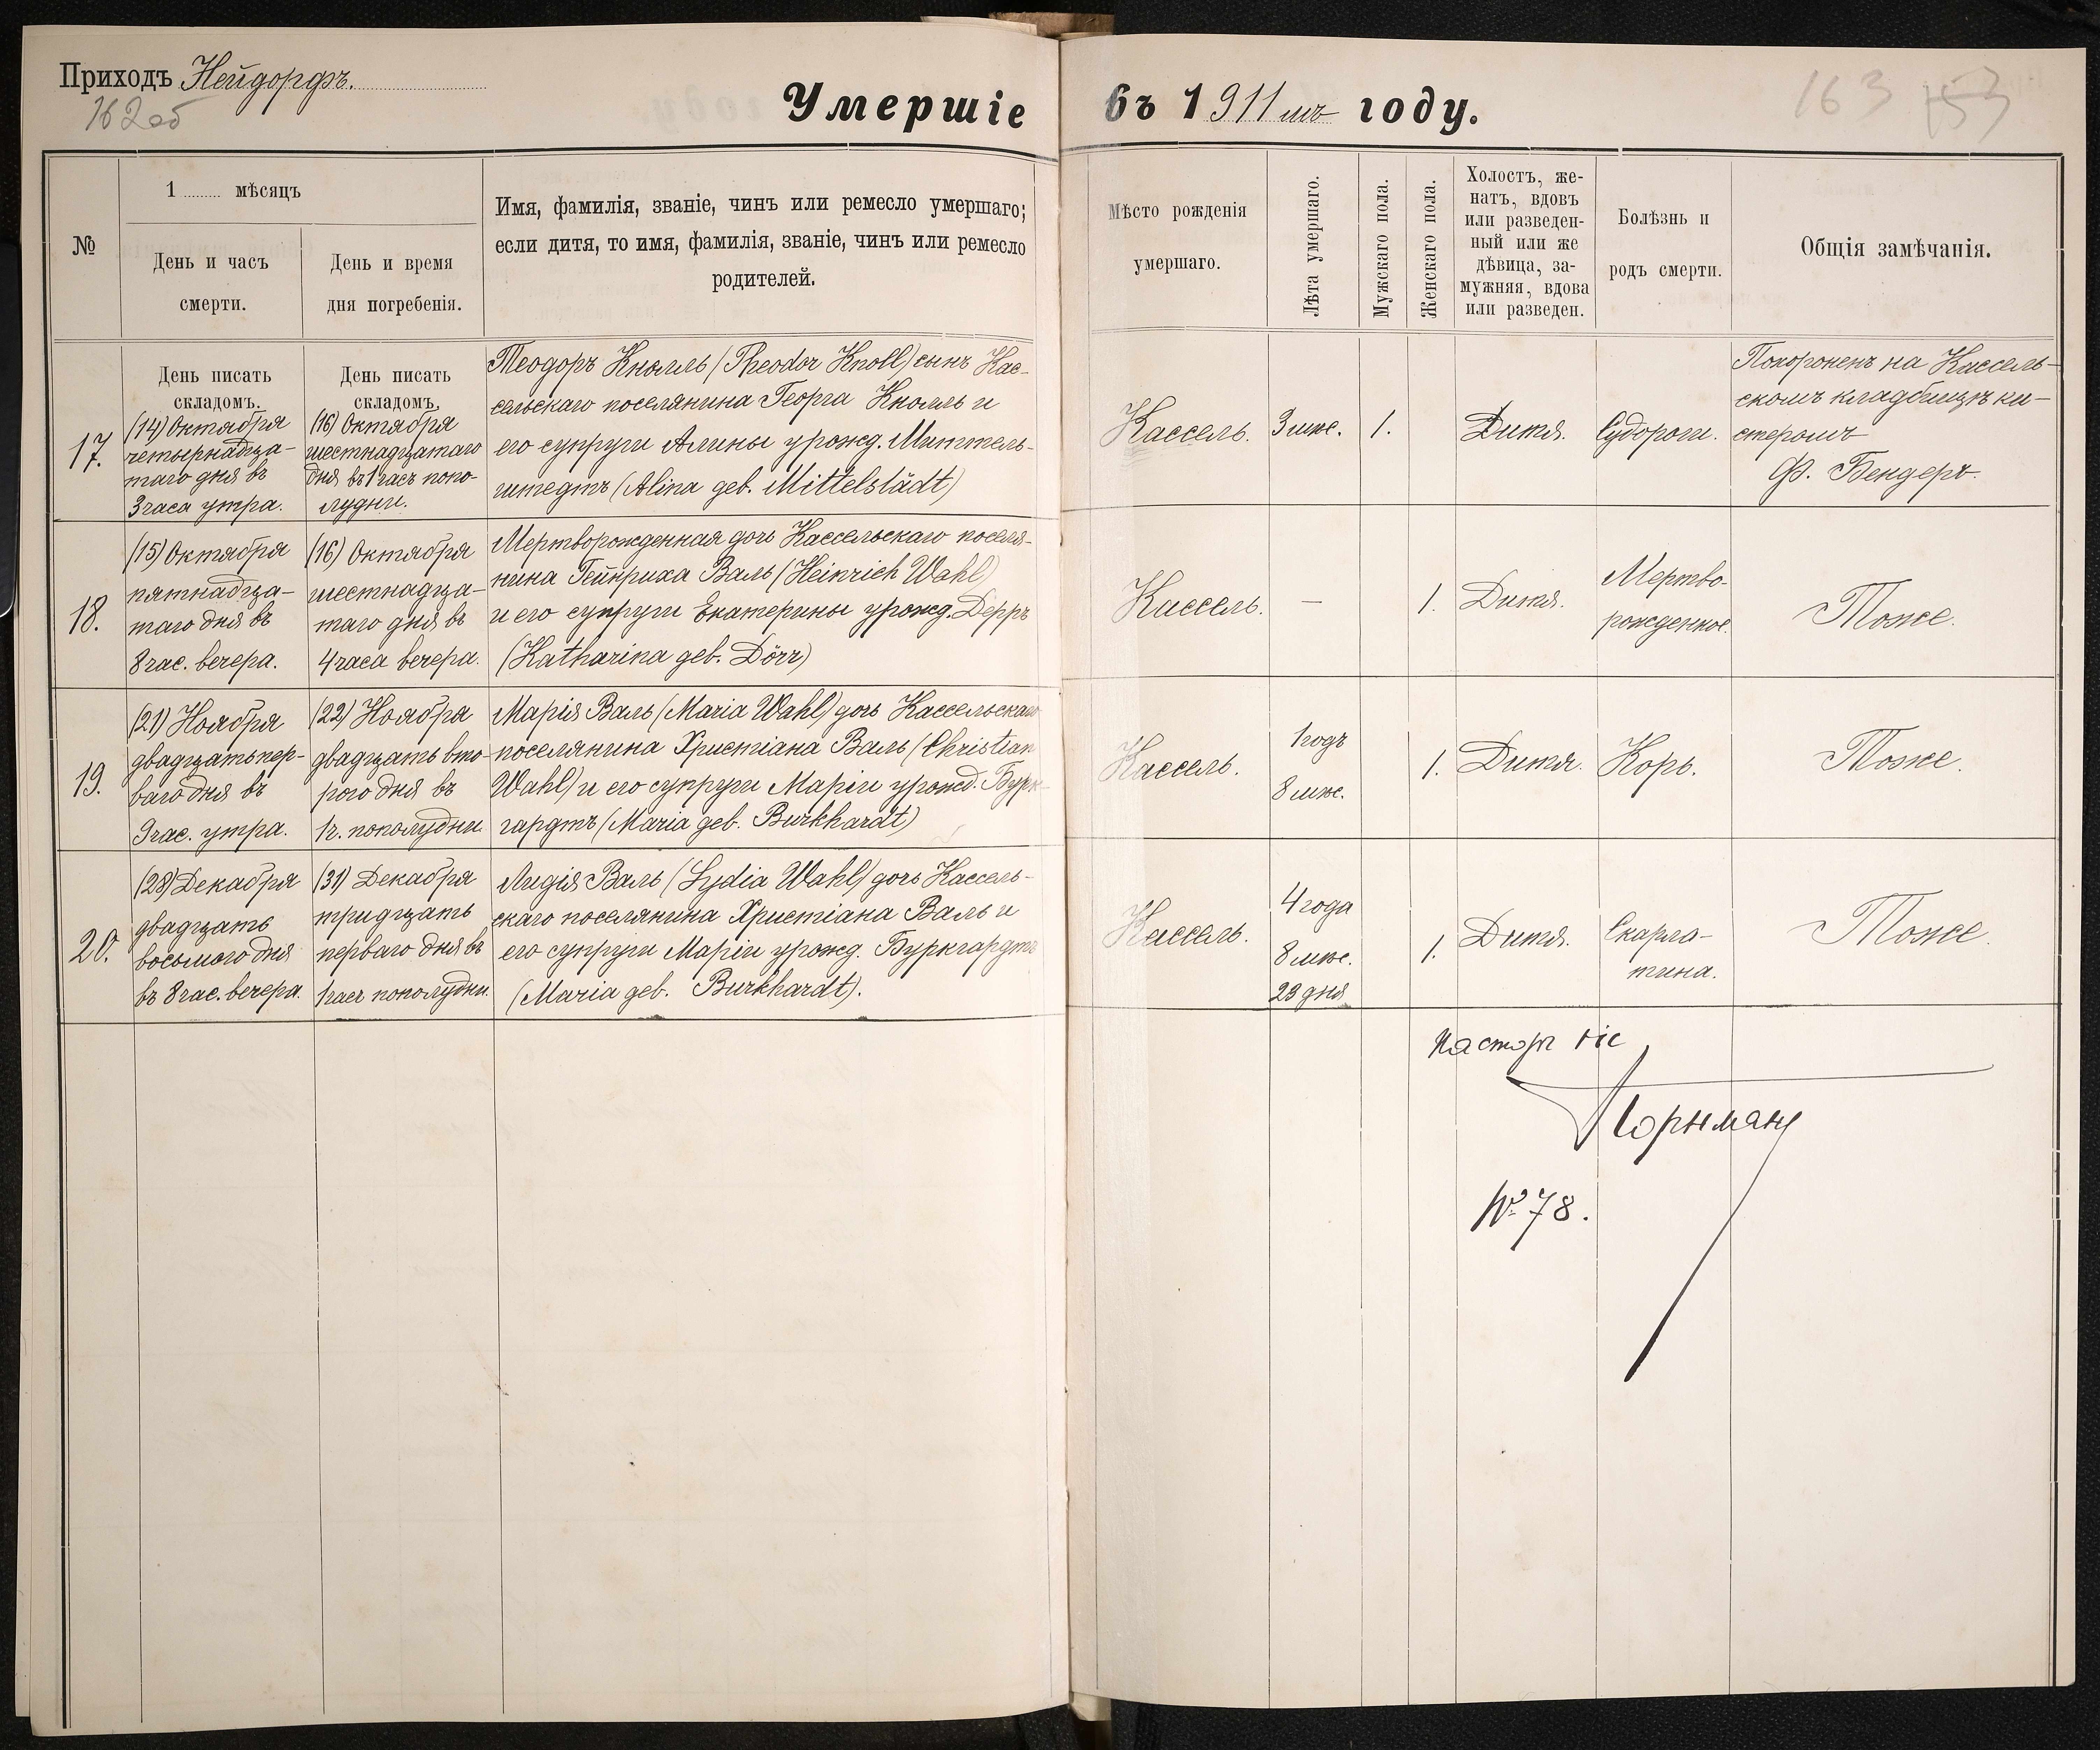 Приходъ Нейдорфъ.
162об
Умершіе въ 1911мъ году.
163 153
№
1 ......... мѣсяцъ
День и часъ
смерти.
День и время
дня погребенія.
Имя, фамилія, званіе, чинъ или ремесло умершаго;
если дитя, то имя, фамилія, званіе, чинъ или ремесло
родителей.
Мѣсто рожденія
умершаго.
Лѣта умершаго.
Мужскаго пола.
Женскаго пола.
Холостъ, же-
натъ, вдовъ
или разведен-
ный или же
дѣвица, за-
мужняя, вдова
или разведен.
Болѣзнь и
родъ смерти.
Общія замѣчанія.
17.
День писать
складомъ.
(14) Октября
четырнадца-
таго дня въ
3 часа утра.
День писать
складомъ.
(16) Октября
шестнадцатаго
дня въ 1 часъ попо-
лудни.
Теодоръ Кнолль (Theodor Knoll) сынъ Кас-
сельскаго поселянина Георга Кнолль и
его супруги Алины урожд. Миттель-
штедтъ (Alina geb. Mittelstädt)
Кассель.
3 мѣс.
1.
Дитя.
Судороги.
Похороненъ на Кассель-
скомъ кладбищѣ ки-
стеромъ
Ф. Бендеръ.
18.
(15) Октября
пятнадца-
таго дня въ
8 час. вечера.
(16) Октября
шестнадца-
таго дня въ
4 часа вечера.
Мертворожденная дочь Кассельскаго поселя-
нина Гейнриха Валь (Heinrich Wahl)
и его супруги Екатерины урожд. Дерръ
(Katharina geb. Dörr)
Кассель.
—
1.
Дитя.
Мертво-
рожденное.
Тоже.
19.
(21) Ноября
двадцать пер-
ваго дня въ
9 час. утра.
(22) Ноября
двадцать вто-
рого дня въ
1 ч. пополудни.
Марія Валь (Maria Wahl) дочь Кассельскаго
поселянина Христіана Валь (Christian
Wahl) и его супруги Маріи урожд. Бурк-
гардтъ (Maria geb. Burkhardt)
Кассель.
1 годъ
8 мѣс.
1.
Дитя.
Корь.
Тоже.
20.
(28) Декабря
двадцать
восьмого дня
въ 8 час. вечера.
(31) Декабря
тридцать
перваго дня въ
1 часъ пополудни.
Лидія Валь (Lydia Wahl) дочь Кассель-
скаго поселянина Христіана Валь и
его супруги Маріи урожд. Буркгардтъ
(Maria geb. Burkhardt).
Кассель.
4 года
8 мѣс.
23 дня
1.
Дитя.
Скарла-
тина.
Тоже.
Пасторъ
№ 78.